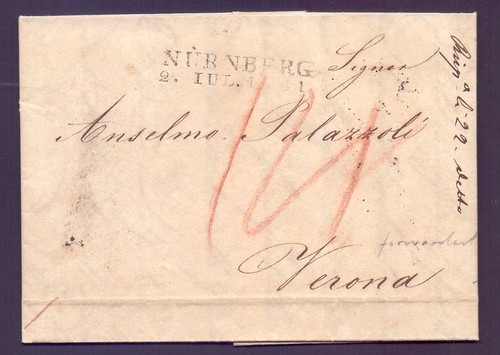 NÜRNBERG
2. IUL. 1
Signor
Anselmo Palazzoli
14
Verona
forwarded
a li 22. detto